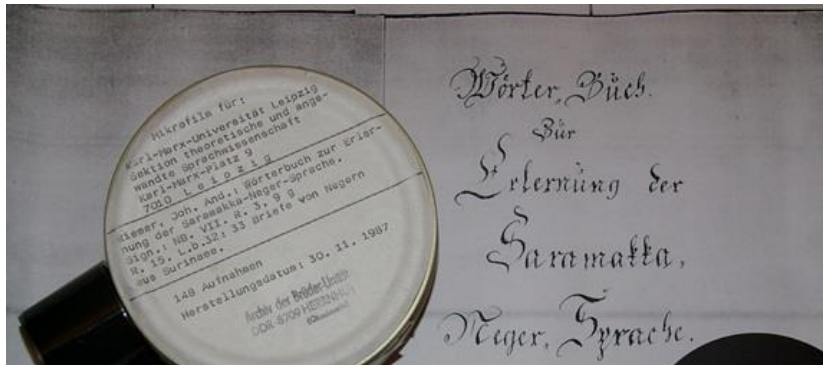 Mikrofilm für:
Karl-Marx-Universität Leipzig
Sektion theoretische und ange-
wandte Sprachwissenschaft
Karl-Marx-Platz 9
7010 Leipzig
Riemer, Joh. And.: Wörterbuch zur Erler-
nung der Saramakka-Neger-Sprache.
Sign.: NB. VII. R. 3, 9 g
R. 15. L.b.32: 33 Briefe von Negern
aus Surinam.
148 Aufnahmen
Herstellungsdatum: 30. 11. 1987
Archiv der Brüder-Unität
DDR-8709 HERRNHUT
Wörter, Büch.
Zür
Erlernüng der
Saramakka,
Neger, Sprache.